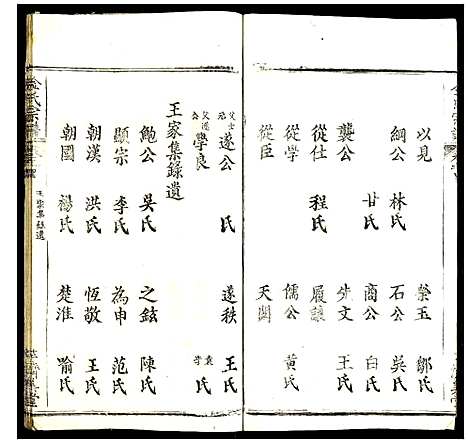 以見　榮玉　鄒氏
綱公　林氏　石公　吳氏
甘氏　商公　白氏
襲公　先文　王氏
從仕　程氏　履謙
從學　儒公　黃氏
從臣　天閣
遂公　氏　遂秩　王氏
學良　氏
王家集錄遺
鮑公　吳氏　之鉉　陳氏
顯宗　李氏　為申　范氏
朝漢　洪氏　恆敬　王氏
朝國　楊氏　楚淮　喻氏
王家集錄遺